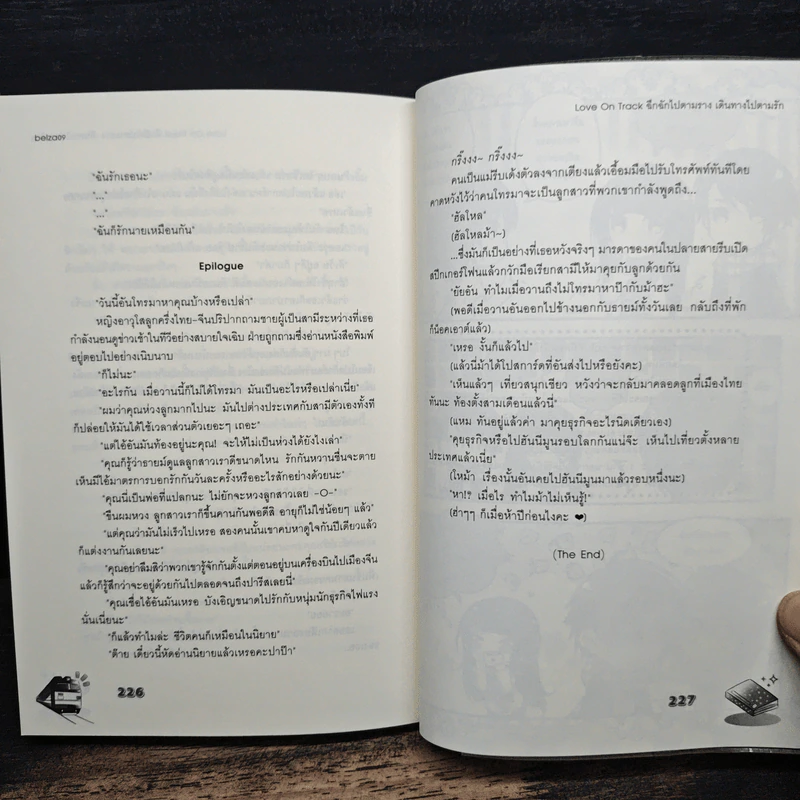 belza09
"ฉันรักเธอนะ"
"..."
"..."
"ฉันก็รักนายเหมือนกัน"
Epilogue
"วันนี้อันโทรมาหาคุณบ้างหรือเปล่า"
หญิงอาวุโสลูกครึ่งไทย-จีนปริปากถามชายผู้เป็นสามีระหว่างที่เธอ
กำลังนอนดูข่าวเช้าในทีวีอย่างสบายใจเฉิบ ฝ่ายถูกถามซึ่งอ่านหนังสือพิมพ์
อยู่ตอบไปอย่างเนิบนาบ
"ก็ไม่นะ"
"อะไรกัน เมื่อวานนี้ก็ไม่ได้โทรมา มันเป็นอะไรหรือเปล่าเนี่ย"
"ผมว่าคุณห่วงลูกมากไปนะ มันไปต่างประเทศกับสามีตัวเองทั้งที
ก็ปล่อยให้มันได้ใช้เวลาส่วนตัวเยอะๆ เถอะ"
"แต่ไอ้อันมันท้องอยู่นะคุณ! จะให้ไม่เป็นห่วงได้ยังไงเล่า"
"คุณก็รู้ว่าธายม์ดูแลลูกสาวเราดีขนาดไหน รักกันหวานชื่นจะตาย
เห็นมีใช้มาตรการบอกรักกันวันละครั้งหรืออะไรสักอย่างด้วยนะ"
"คุณนี่เป็นพ่อที่แปลกนะ ไม่ยักจะหวงลูกสาวเลย -O-"
"ขืนผมหวง ลูกสาวเราก็ขึ้นคานกันพอดีสิ อายุก็ไม่ใช่น้อยๆ แล้ว"
"แต่คุณว่ามันไม่เร็วไปเหรอ สองคนนั้นเขาคบหาดูใจกันปีเดียวแล้ว
ก็แต่งงานกันเลยนะ"
"คุณอย่าลืมสิว่าพวกเขารู้จักกันตั้งแต่ตอนอยู่บนเครื่องบินไปเมืองจีน
แล้วก็รู้สึกว่าจะอยู่ด้วยกันไปตลอดจนถึงปารีสเลยนี่"
"คุณเชื่อไอ้อันมันเหรอ บังเอิญขนาดไปรักกับหนุ่มนักธุรกิจไฟแรง
นั่นเนี่ยนะ"
"ก็แล้วทำไมล่ะ ชีวิตคนก็เหมือนในนิยาย"
"ต๊าย เดี๋ยวนี้หัดอ่านนิยายแล้วเหรอคะปาป๊า"
226
Love On Track ฉึกฉักไปตามราง เดินทางไปตามรัก
กริ๊งงง~ กริ๊งงง~
คนเป็นแม่รีบเด้งตัวลงจากเตียงแล้วเอื้อมมือไปรับโทรศัพท์ทันทีโดย
คาดหวังไว้ว่าคนโทรมาจะเป็นลูกสาวที่พวกเขากำลังพูดถึง...
"ฮัลโหล"
(ฮัลโหลม้า~)
...ซึ่งมันก็เป็นอย่างที่เธอหวังจริงๆ มารดาของคนในปลายสายรีบเปิด
สปีกเกอร์โฟนแล้วกวักมือเรียกสามีให้มาคุยกับลูกด้วยกัน
"ยัยอัน ทำไมเมื่อวานถึงไม่โทรมาหาป๊ากับม้าฮะ"
(พอดีเมื่อวานอันออกไปข้างนอกกับธายม์ทั้งวันเลย กลับถึงที่พัก
ก็น็อคเอาต์แล้ว)
"เหรอ งั้นก็แล้วไป"
(แล้วนี่ม้าได้โปสการ์ดที่อันส่งไปหรือยังคะ)
"เห็นแล้วๆ เที่ยวสนุกเชียว หวังว่าจะกลับมาคลอดลูกที่เมืองไทย
ทันนะ ท้องตั้งสามเดือนแล้วนี่"
(แหม ทันอยู่แล้วค่า มาคุยธุรกิจอะไรนิดเดียวเอง)
"คุยธุรกิจหรือไปฮันนีมูนรอบโลกกันแน่จ๊ะ เห็นไปเที่ยวตั้งหลาย
ประเทศแล้วเนี่ย"
(ใหม้า เรื่องนั้นอันเคยไปฮันนีมูนมาแล้วรอบหนึ่งนะ)
"หา!? เมื่อไร ทำไมม้าไม่เห็นรู้!"
(ฮ่าๆๆ ก็เมื่อห้าปีก่อนไงคะ ❤)
(The End)
227